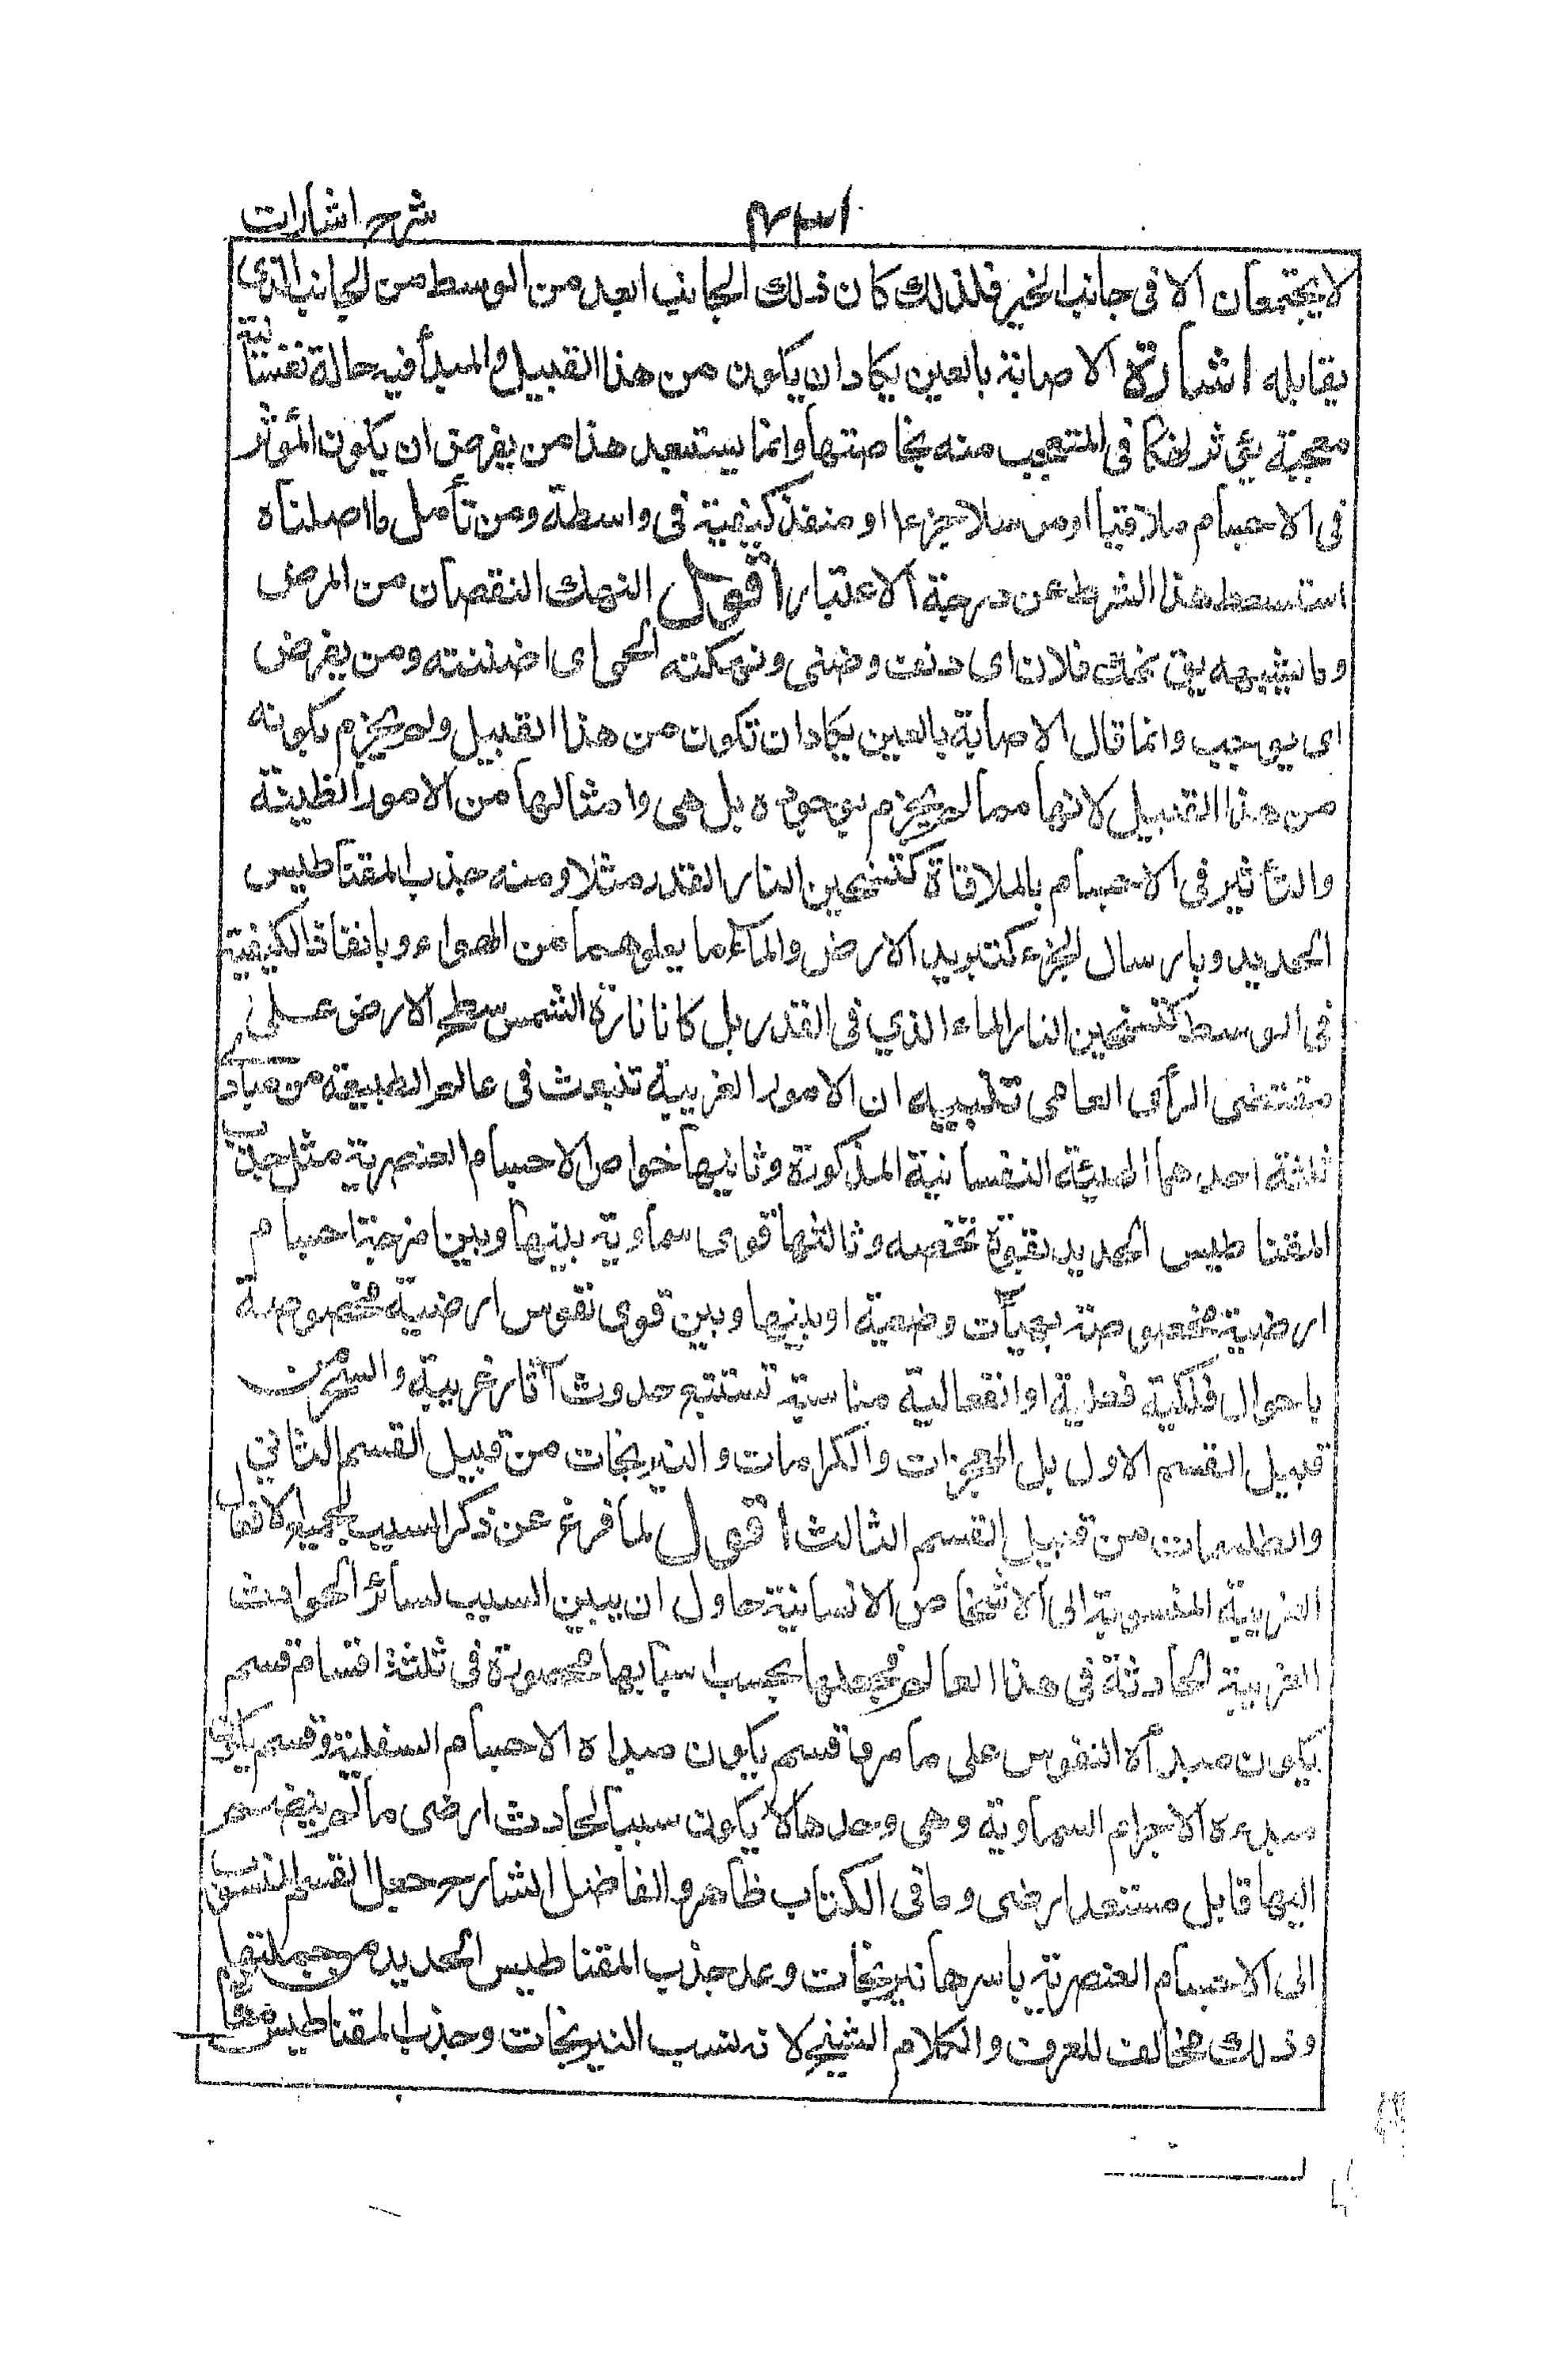 شرح اشارات
لا يجتمعان الا فى جانب الخير فلذلك كان ذلك الجانب ابعد من الوسط من الجانب الذى
يقابله اشارة الاصابة بالعين يكاد ان يكون من هذا القبيل والمبدأ فيه حالة نفسانية
معجبة يؤثر نهكا فى المتعجب منه بخاصتها وانما يستبعد هذا من يفرض ان يكون المؤثر
فى الاجسام ملاقيا او مرسلا جزءا او منفذ كيفية فى واسطة ومن تأمل ما اصلناه
استسقط هذا الشرط عن درجة الاعتبار اقول النهك النقصان من المرض
وما يشبهه يق نهك فلان اى دنف وضنى ونهكته الحمى اى اضننته ومن يفرض
اى يوجب وانما قال الاصابة بالعين يكاد ان تكون من هذا القبيل ولم يجزم بكونه
من هذا القبيل لانها مما لم يجزم بوجوده بل هى وامثالها من الامور الظنية
والتأثير فى الاجسام بالملاقاة كتسخين النار القدر مثلا ومنه جذب المقناطيس
الحديد وبارسال الجزء كتبريد الارض والماء ما يعلوهما من الهواء وبانفاذ الكيفية
فى الوسط كتسخين النار الماء الذي فى القدر بل كانارة الشمس سطح الارض على
مقتضى الرأى العامى تنبيه ان الامور الغريبة تنبعث فى عالم الطبيعة من مباد
ثلثة احدها الهيئة النفسانية المذكورة وثانيها خواص الاجسام العنصرية مثل جذب
المقناطيس الحديد بقوة تخصه وثالثها قوى سماوية بينها وبين امزجة اجسام
ارضية مخصوصة بهيأت وضعية او بينها وبين قوى نفوس ارضية مخصوصة
باحوال فلكية فعلية او انفعالية مناسبة تستتبع حدوث آثار غريبة والسحر من
قبيل القسم الاول بل المعجزات والكرامات والنيرنجات من قبيل القسم الثانى
والطلسمات من قبيل القسم الثالث اقول لما فرغ عن ذكر السبب لجميع الافعال
الغريبة المنسوبة الى الاشخاص الانسانية حاول ان يبين السبب لسائر الحوادث
الغريبة الحادثة فى هذا العالم فجعلها بحسب اسبابها محصورة فى ثلثة اقسام قسم
يكون مبدأه النفوس على ما مر وقسم يكون مبداه الاجسام السفلية وقسم يكون
مبدءه الاجرام السماوية وهى وحدها لا يكون سببا لحادث ارضى ما لم ينضم
اليها قابل مستعد ارضى وما فى الكتاب ظاهر والفاضل الشارح جعل القسم المنسوب
الى الاجسام العنصرية باسرها نيرنجات وعد جذب المقناطيس الحديد من جملتها
وذلك مخالف للعرف والكلام الشيخ لانه نسب النيرنجات وجذب المقناطيس معا